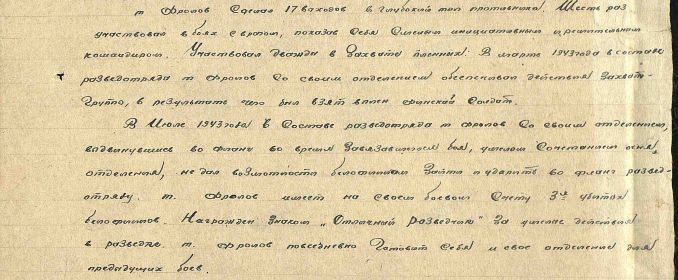 т Фролов Сделал 17 выходов в глубокий тыл противника. Шесть раз
участвовал в боях с врагом, показав Себя Смелым инициативным и решительным
командиром. Участвовал дважды в Захвате пленных: В марте 1943 года в составе
разведотряда т Фролов Со своим отделением обеспечивал действия Захват-
Группы, в результате чего был взят в плен финский Солдат.
В Июле 1943 года в Составе разведотряда т Фролов Со своим отделением,
выдвинувшись во фланг во время Завязавшегося боя, умелым Сочетанием огня
отделения, не дал возможности белофиннам Зайти и ударить во фланг развед-
отряду. т. Фролов имеет на своем боевом Счету 3-х убитых
белофиннов. Награжден Знаком „Отличный разведчик" За умелые действия
в разведке. т. Фролов повседневно Готовит Себя и свое отделение для
предыдущих боев.